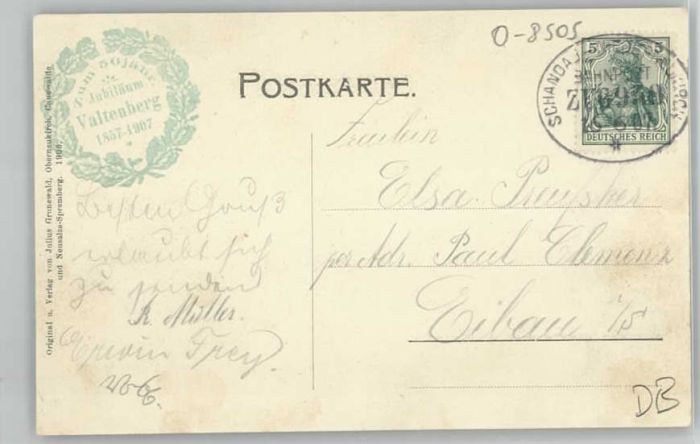 O-8505
Zum 50jähr.
Jubiläum
Valtenberg
1857-1907
POSTKARTE.
5 5
DEUTSCHES REICH
SCHANDAU
BAHNPOST
ZUG
Original u. Verlag von Julius Grunewald, Oberneukirch, Cunewalde
und Neusalza-Spremberg. 1906.
Fräulein
Elsa Preusker
per Adr. Paul Clemenz
Eibau i/S
Besten Gruß
erlaubt sich
zu senden
K. Müller.
Erwin Frey.
DB